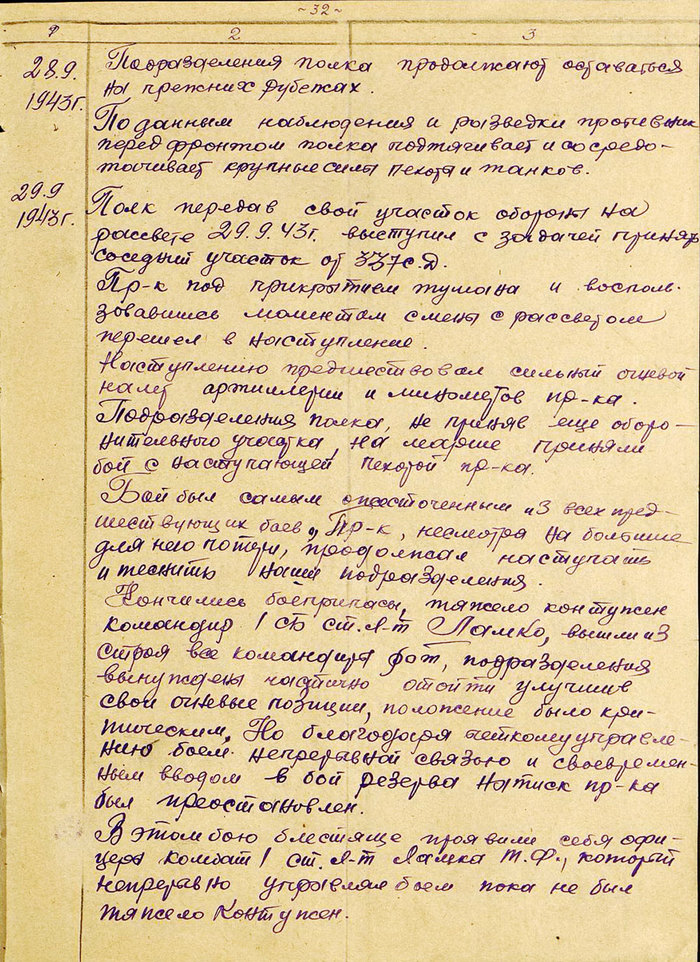 ~32~
1 2 3
28.9.
1943г.
Подразделения полка продолжают оставаться
на прежних рубежах.
По данным наблюдения и разведки противник
перед фронтом полка подтягивает и сосредо-
тачивает крупные силы пехоты и танков.
29.9
1943г.
Полк передав свой участок обороны на
рассвете 29.9.43г. выступил с задачей принять
соседний участок от 337с.д.
Пр-к под прикрытием тумана и восполь-
зовавшись моментом смены с рассветом
перешел в наступление.
Наступлению предшествовал сильный огневой
налет артиллерии и минометов пр-ка.
Подразделения полка, не приняв еще оборо-
нительного участка, на марше приняли
бой с наступающей пехотой пр-ка.
Бой был самым ожесточенным из всех пред-
шествующих боев, Пр-к, несмотря на большие
для него потери, продолжал наступать
и теснить наши подразделения.
Кончились боеприпасы, тяжело контужен
командир 1 СБ ст. л-т Лямко, вышли из
строя все командиры рот, подразделения
вынуждены частично отойти улучшив
свои огневые позиции, положение было кри-
тическим. Но благодаря четкому управле-
нию боем непрерывной связью и своевремен-
ным вводом в бой резерва натиск пр-ка
был приостановлен.
В этом бою блестяще проявили себя офи-
церы комбат 1 ст. л-т Лямка Т.Ф., который
непрерывно управлял боем пока не был
тяжело контужен.